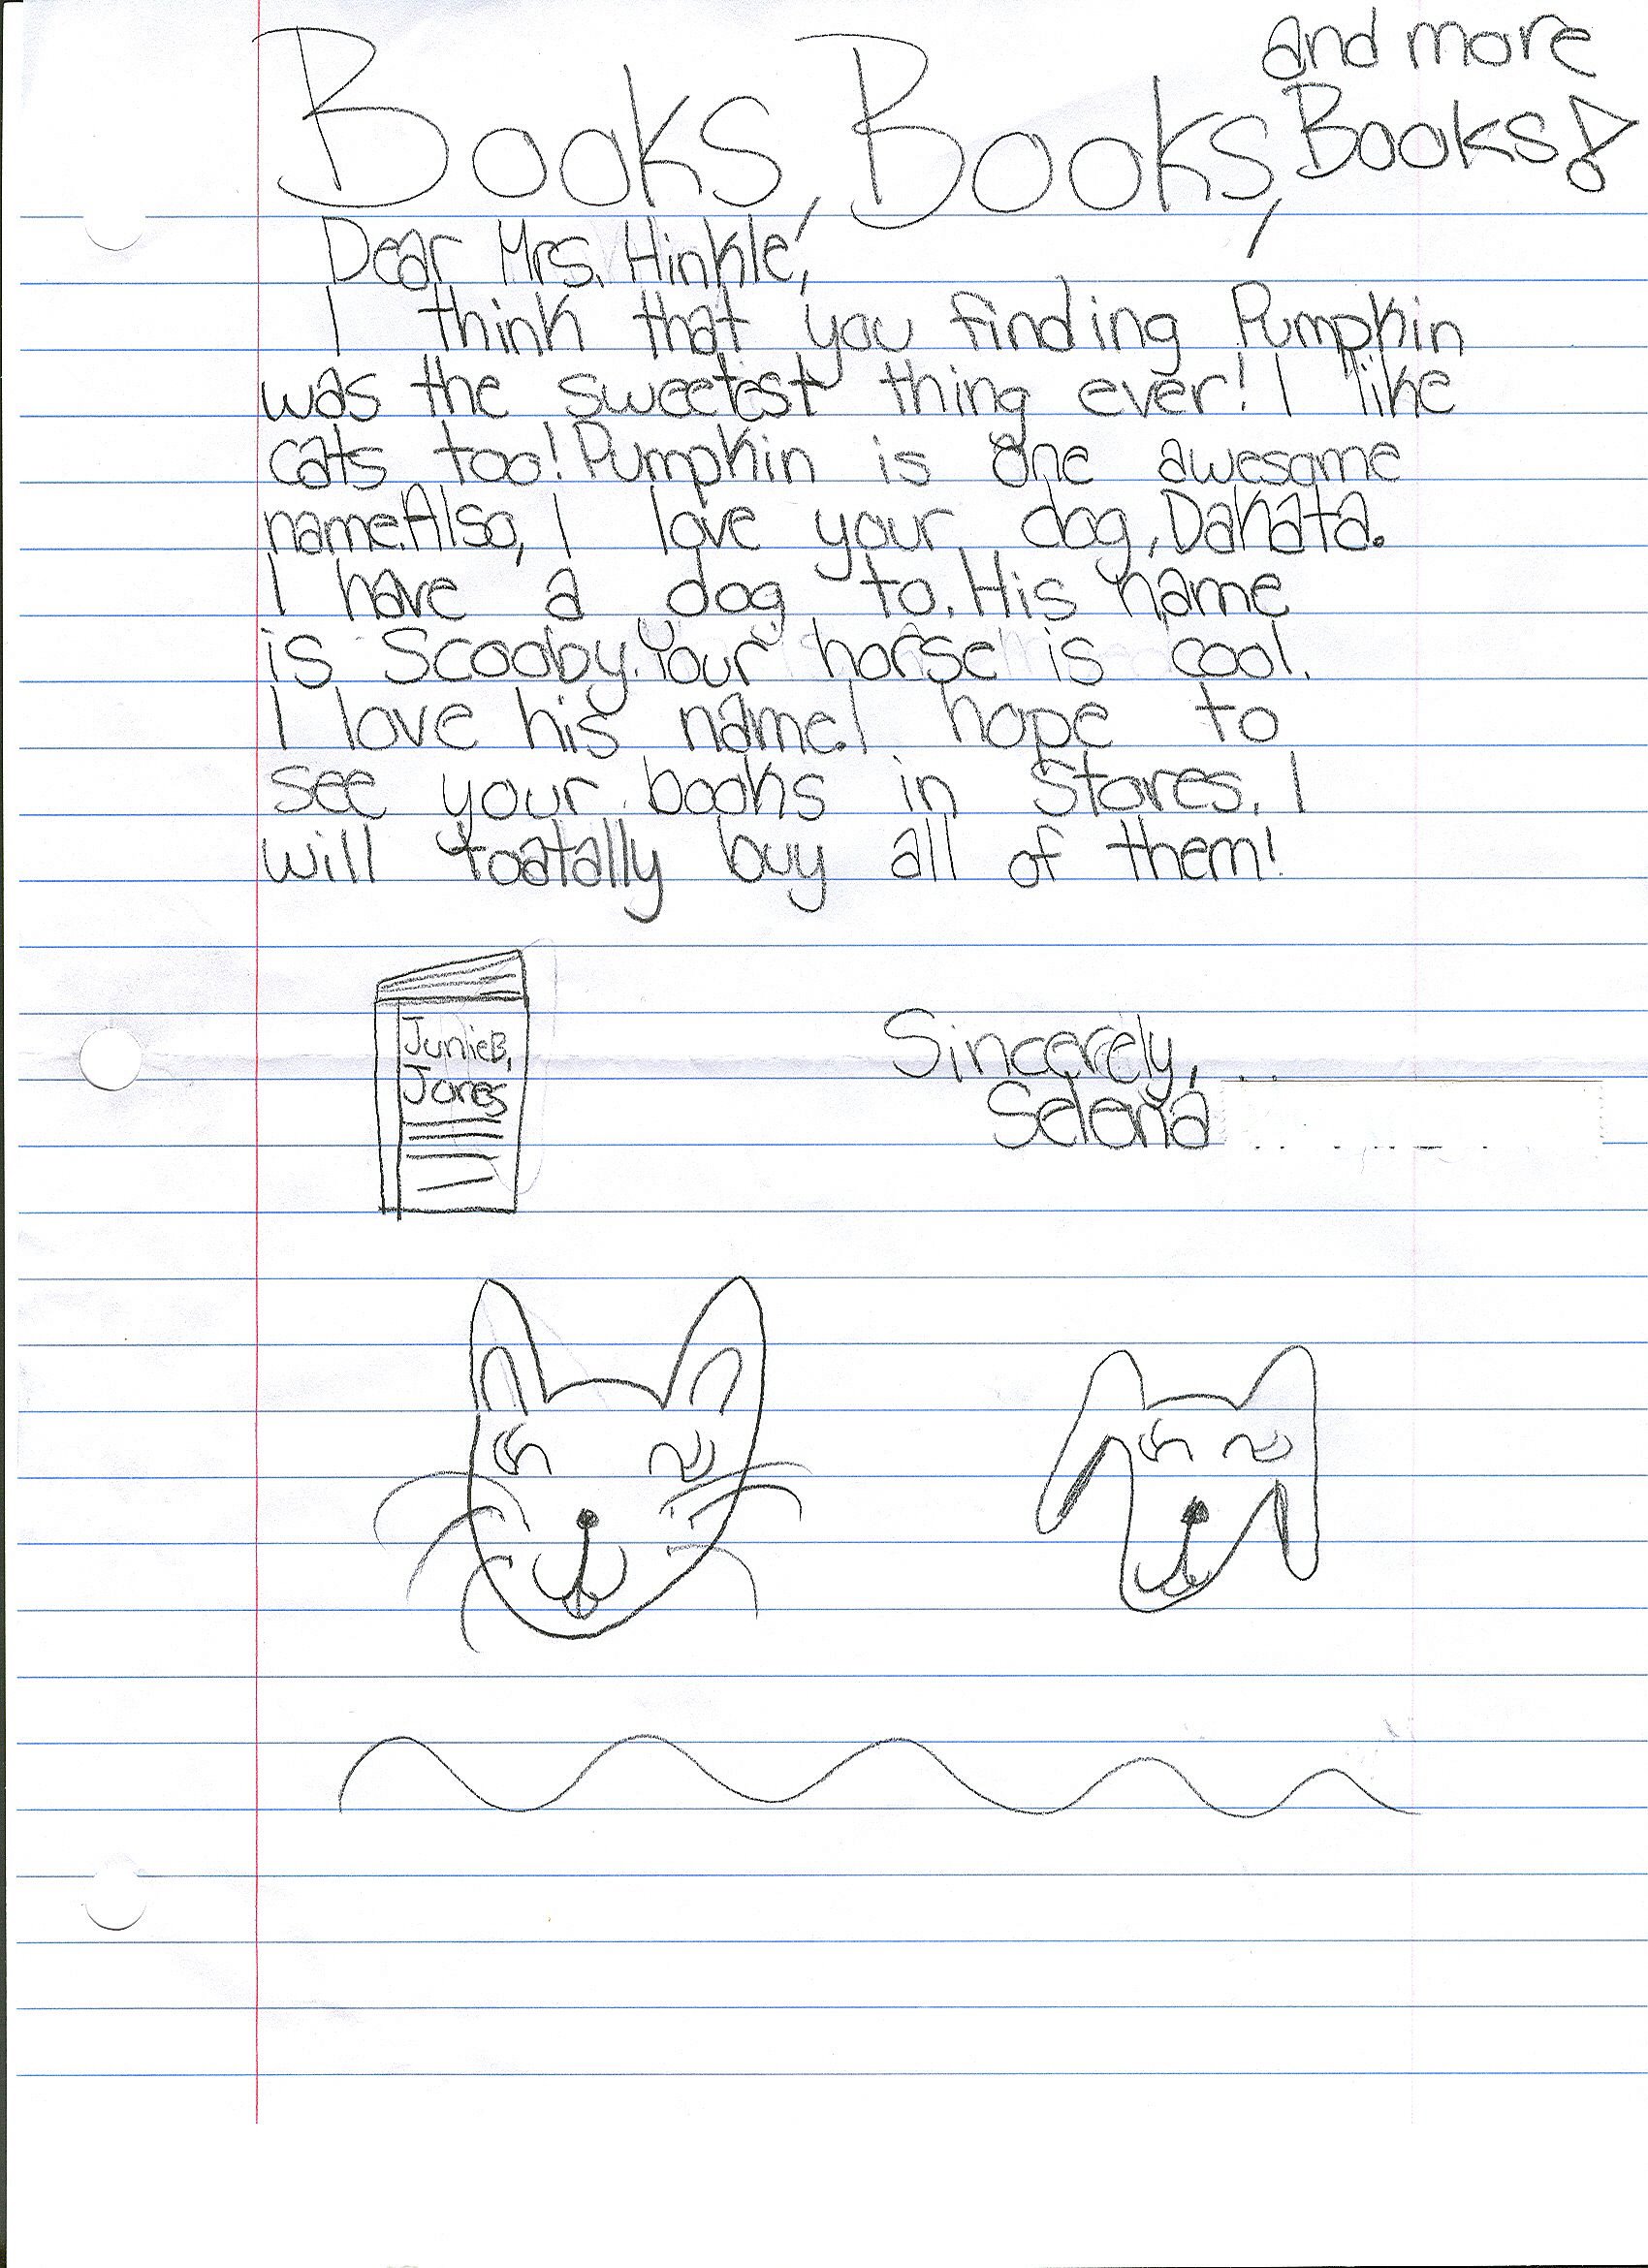 Books, Books, and more Books!
Dear Mrs. Hinkle,
I think that you finding Pumpkin
was the sweetest thing ever! I like
cats too! Pumpkin is one awesome
name. Also, I love your dog, Dakata.
I have a dog to. His name
is Scooby. Your horse is cool.
I love his name. I hope to
see your books in Stores. I
will toatally buy all of them!
Junie B,
Jones
Sincerely,
Selena